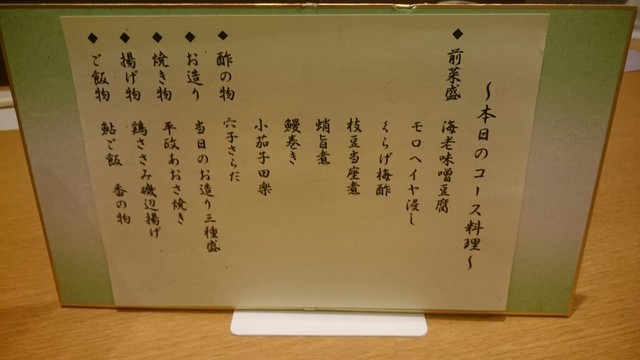 ～本日のコース料理～
◆前菜盛 海老味噌豆腐
モロヘイヤ浸し
くらげ梅酢
枝豆当座煮
蛸旨煮
鰻巻き
小茄子田楽
◆酢の物 穴子さらだ
◆お造り 当日のお造り三種盛
◆焼き物 平政あおさ焼き
◆揚げ物 鶏ささみ磯辺揚げ
◆ご飯物 鮎ご飯 香の物